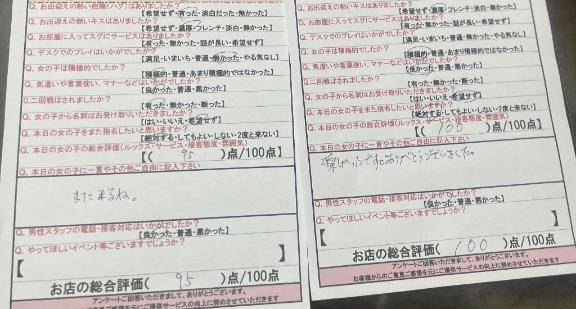 Q. お出迎えの熱い抱擁(ハグ)はありましたか?
【希望せず・有った・淡白だった・無かった】
Q. お出迎えの熱いキスはありましたか?
【希望せず・濃厚・フレンチ・淡白・無かった】
Q. お部屋に入ってスグにサービスはありましたか?
【有った・無かった・話が長い・希望せず】
Q. デスクでのプレイはいかがでしたか?
【満足・いまいち・普通・無かった・やる気なし】
Q. 女の子は積極的でしたか?
【積極的・普通・あまり積極的ではなかった】
Q. 気遣いや言葉使い、マナーなどはいかがでしたか?
【良かった・普通・悪かった】
Q. 二回戦はされましたか?
【有った・無かった・断った】
Q. 女の子から名刺はお受け取りいただけましたか?
【はい・いいえ・希望せず】
Q. 本日の女の子をまた指名したいと思いますか?
【絶対する・してもよい・しない・2度と来ない】
Q. 本日の女の子の総合評価(ルックス・サービス・接客態度・雰囲気)
【( 95 )点/100点】
Q. 本日の女の子に一言やその他ご自由に記入下さい
また来るね。
Q. 男性スタッフの電話・接客対応はいかがでしたか?
【良かった・普通・悪かった】
Q. やってほしいイベント等ございますでしょうか?
【 】
お店の総合評価( 95 )点/100点
アンケートご回答いただきまして、ありがとうございます。
お客様からのご意見ご感想を元にご提供サービスの向上に努めさせていただきます
Q. お出迎えの熱いキスはありましたか?
【希望せず・濃厚・フレンチ・淡白・無かった】
Q. お部屋に入ってスグにサービスはありましたか?
【有った・無かった・話が長い・希望せず】
Q. デスクでのプレイはいかがでしたか?
【満足・いまいち・普通・無かった・やる気なし】
Q. 女の子は積極的でしたか?
【積極的・普通・あまり積極的ではなかった】
Q. 気遣いや言葉使い、マナーなどはいかがでしたか?
【良かった・普通・悪かった】
Q. 二回戦はされましたか?
【有った・無かった・断った】
Q. 女の子から名刺はお受け取りいただけましたか?
【はい・いいえ・希望せず】
Q. 本日の女の子をまた指名したいと思いますか?
【絶対する・してもよい・しない・2度と来ない】
Q. 本日の女の子の総合評価(ルックス・サービス・接客態度・雰囲気)
【( 100 )点/100点】
Q. 本日の女の子に一言やその他ご自由に記入下さい
楽しかったですありがとうございました。
Q. 男性スタッフの電話・接客対応はいかがでしたか?
【良かった・普通・悪かった】
Q. やってほしいイベント等ございますでしょうか?
【 】
お店の総合評価( 100 )点/100点
アンケートご回答いただきまして、ありがとうございます。
お客様からのご意見ご感想を元にご提供サービスの向上に努めさせていただきます